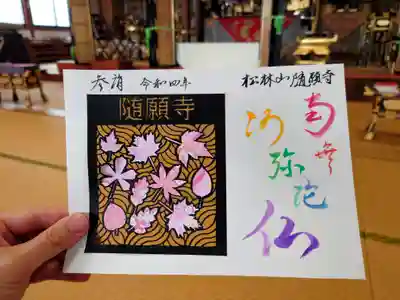 参拝 令和四年
松林山随願寺
随願寺
南無
阿
弥陀
仏